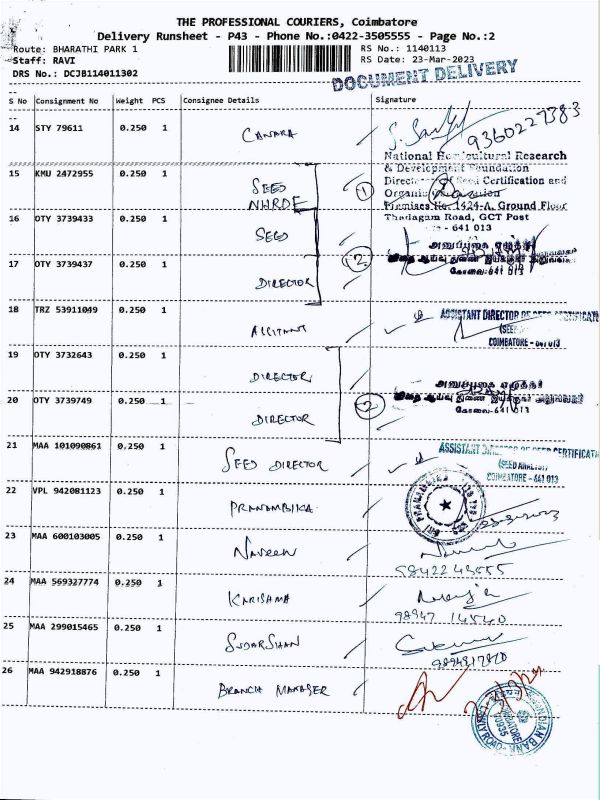 THE PROFESSIONAL COURIERS, Coimbatore
Delivery Runsheet - P43 - Phone No.:0422-3505555 - Page No.:2
Route: BHARATHI PARK 1
RS No.: 1140113
Staff: RAVI
RS Date: 23-Mar-2023
DRS No.: DCJB114011302
DOCUMENT DELIVERY
S No Consignment No Weight PCS Consignee Details Signature
14 STY 79611 0.250 1 CANARA
9360227383
National Horticultural Research
& Development Foundation
15 KMU 2472955 0.250 1 SEED NHRDF 1
of Seed Certification and
Organic
Premises No. 1424-A, Ground Floor
Thadagam Road, GCT Post
- 641 013
16 OTY 3739433 0.250 1 SEED
அனுப்புகை எழுத்தர்
17 OTY 3739437 0.250 1 DIRECTOR 2
கோவை-641 013
18 TRZ 53911049 0.250 1 ASSITANT
ASSISTANT DIRECTOR OF SEED CERTIFICATI
COIMBATORE - 641 013
19 OTY 3732643 0.250 1 DIRECTOR
அனுப்புகை எழுத்தர்
20 OTY 3739749 0.250 1 DIRECTOR 2
கோவை-641 013
21 MAA 101090861 0.250 1 SEED DIRECTOR
ASSISTANT DIRECTOR OF SEED CERTIFICATI
COIMBATORE - 641 013
22 VPL 942081123 0.250 1 PRANAMBIKA
23 MAA 600103005 0.250 1 NAVEEN
24 MAA 569327774 0.250 1 KARISHMA
98947 14540
25 MAA 299015465 0.250 1 SUDARSHAN
26 MAA 942918876 0.250 1 BRANCH MANAGER
INDIAN BANK